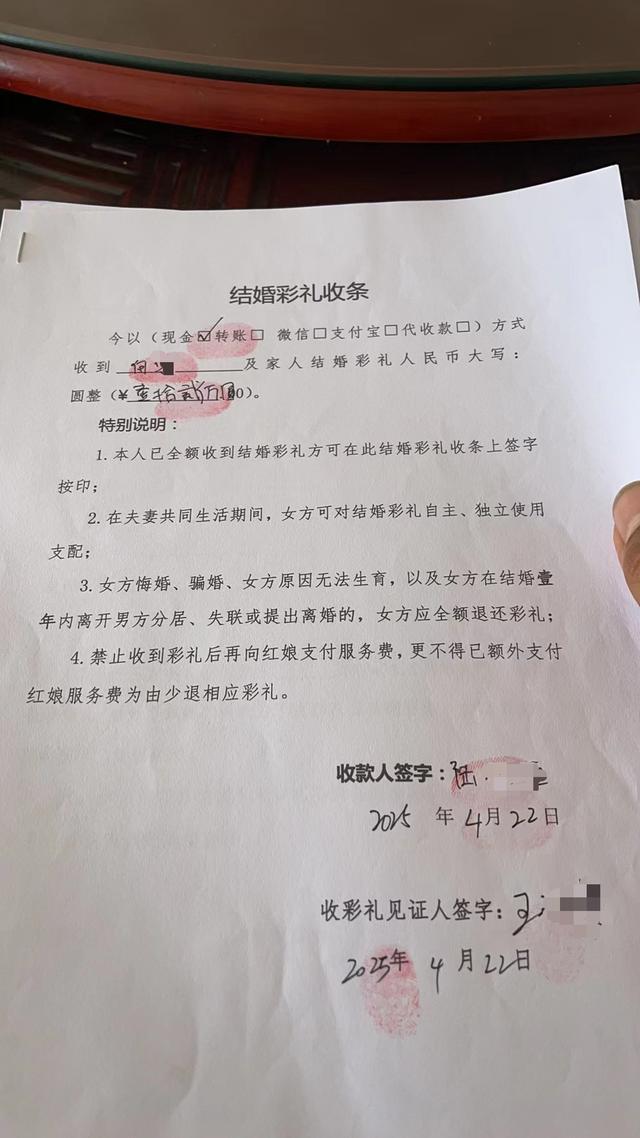 结婚彩礼收条
今以(现金☑转账□ 微信□支付宝□代收款□)方式
收到 及家人结婚彩礼人民币大写:
圆整(¥壹拾贰万圆00)。
特别说明:
1.本人已全额收到结婚彩礼方可在此结婚彩礼收条上签字
按印;
2.在夫妻共同生活期间,女方可对结婚彩礼自主、独立使用
支配;
3.女方悔婚、骗婚、女方原因无法生育,以及女方在结婚壹
年内离开男方分居、失联或提出离婚的,女方应全额退还彩礼;
4.禁止收到彩礼后再向红娘支付服务费,更不得已额外支付
红娘服务费为由少退相应彩礼。
收款人签字:陆
2025 年 4月22日
收彩礼见证人签字:王
2025年 4月22日